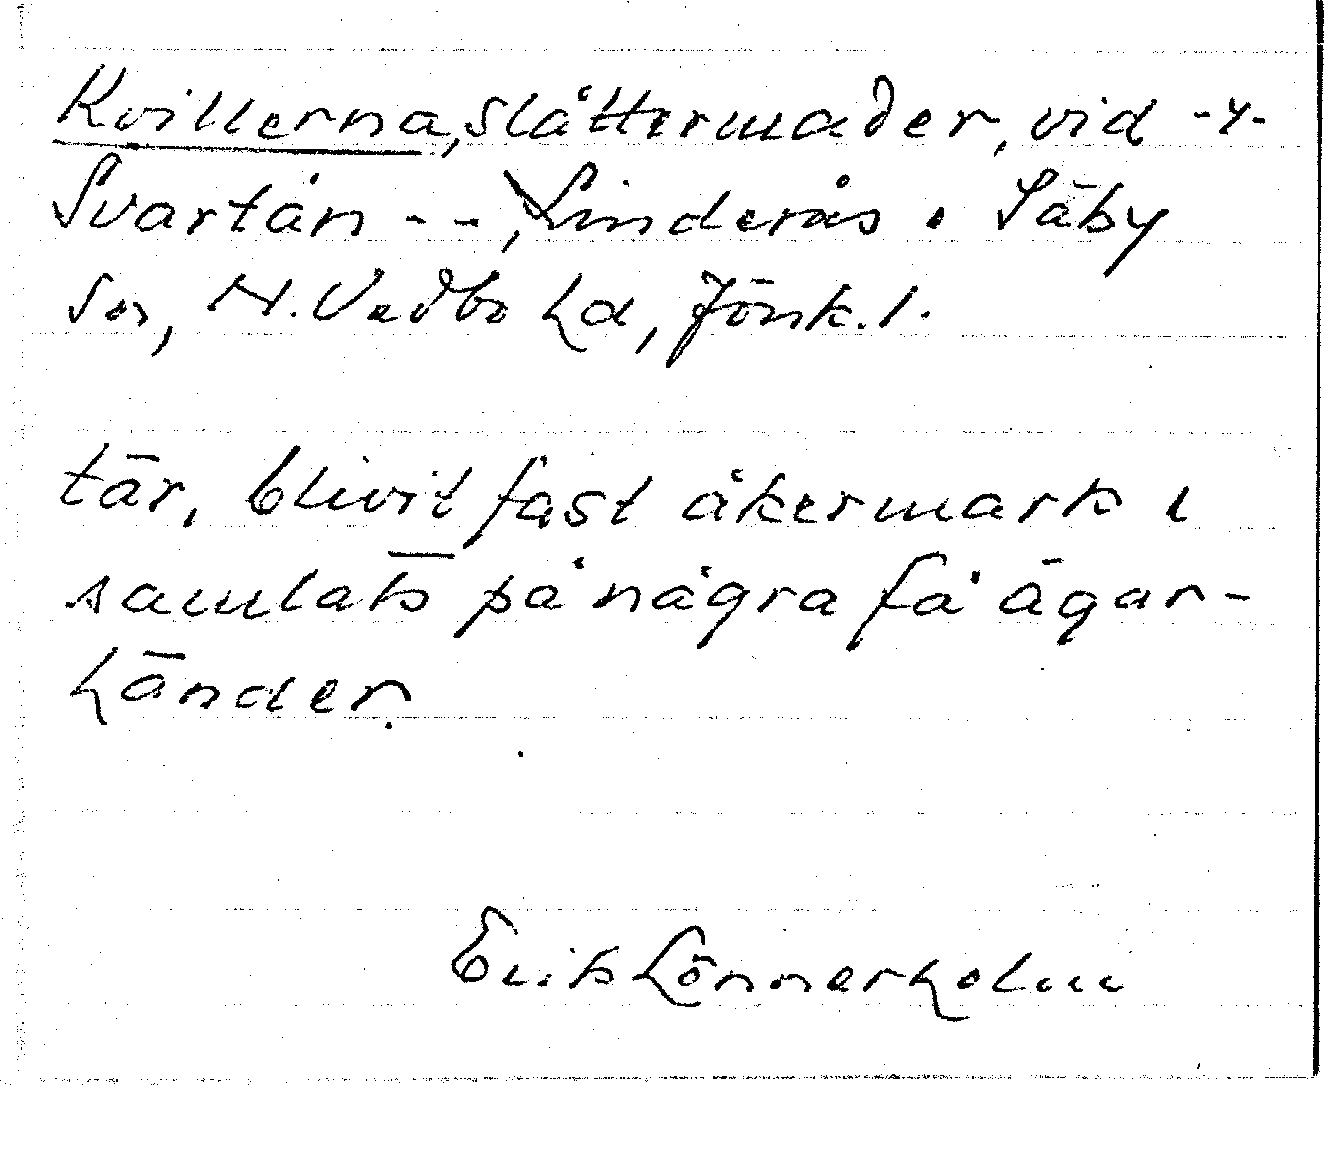 Kvillerna, slåttermader, vid -4-
Svartån - -, Linderås o Säby
sor, N. Vedbo hd, Jönk. l.
tär, blivit fast åkermark o
samlats på några få ägar-
händer.
Erik Lönnerholm